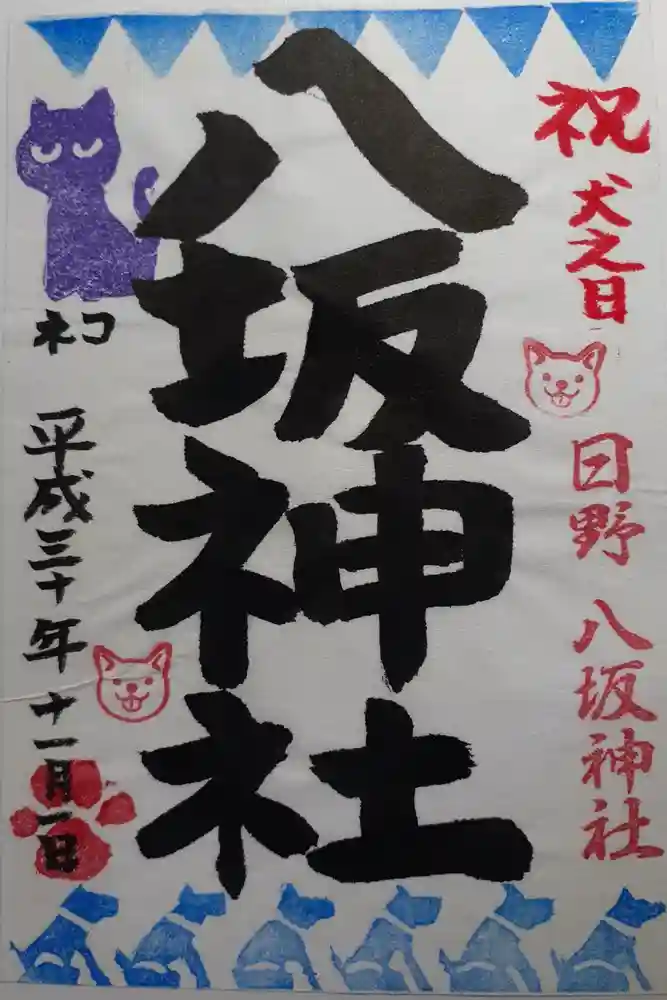 祝
犬之日
日野 八坂神社
八坂神社
ネコ
平成三十年 十一月一日